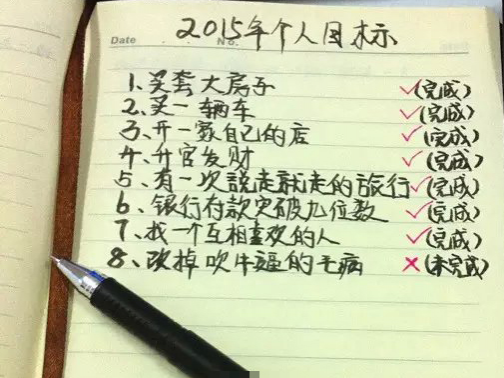 2015年个人目标
Date No.
1、买套大房子 ✓(完成)
2、买一辆车 ✓(完成)
3、开一家自己的店 ✓(完成)
4、升官发财 ✓(完成)
5、有一次説走就走的旅行 ✓(完成)
6、银行存款突破九位数 ✓(完成)
7、找一个互相喜欢的人 ✓(完成)
8、改掉吹牛逼的毛病 ×(未完成)